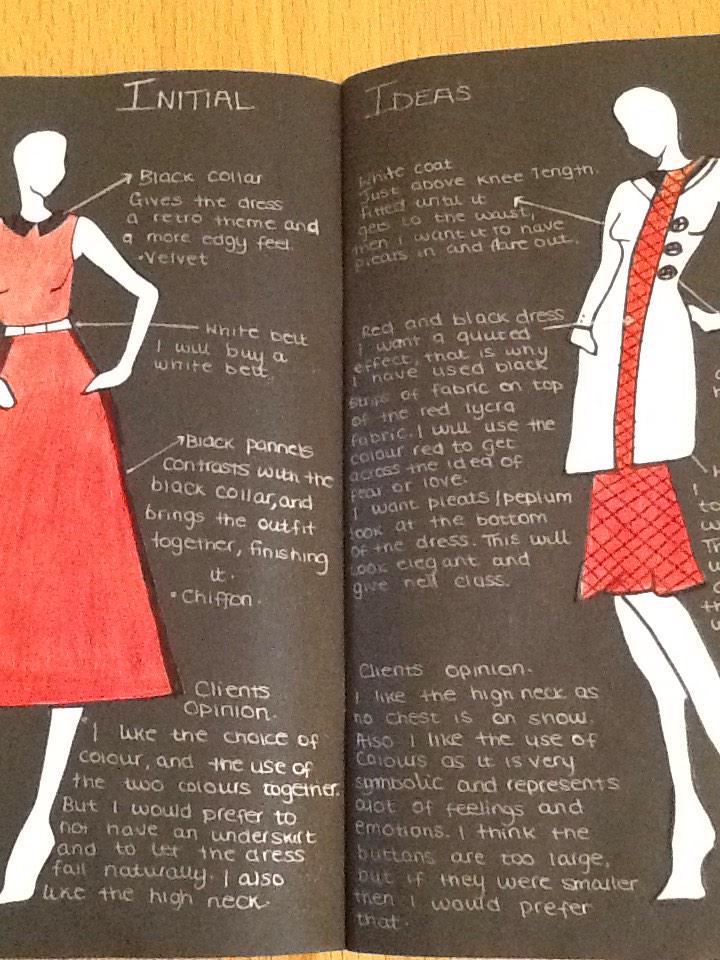 INITIAL IDEAS
Black collar
Gives the dress
a retro theme and
a more edgy feel.
•Velvet
White belt
I will buy a
white belt.
Black pannels
contrasts with the
black collar, and
brings the outfit
together, finishing
it.
•Chiffon.
Clients
Opinion.
I like the choice of
colour, and the use of
the two colours together.
But I would prefer to
not have an underskirt
and to let the dress
fall naturally. I also
like the high neck.
White coat
Just above knee length.
Fitted until it
gets to the waist,
then I want it to have
pleats in and flare out.
Red and black dress
I want a quilted
effect, that is why
I have used black
strips of fabric on top
of the red lycra
fabric. I will use the
colour red to get
across the idea of
fear or love.
I want pleats/peplum
look at the bottom
of the dress. This will
look elegant and
give class.
Clients opinion.
I like the high neck as
no chest is on show.
Also I like the use of
colours as it is very
symbolic and represents
alot of feelings and
emotions. I think the
buttons are too large,
but if they were smaller
then I would prefer
that.